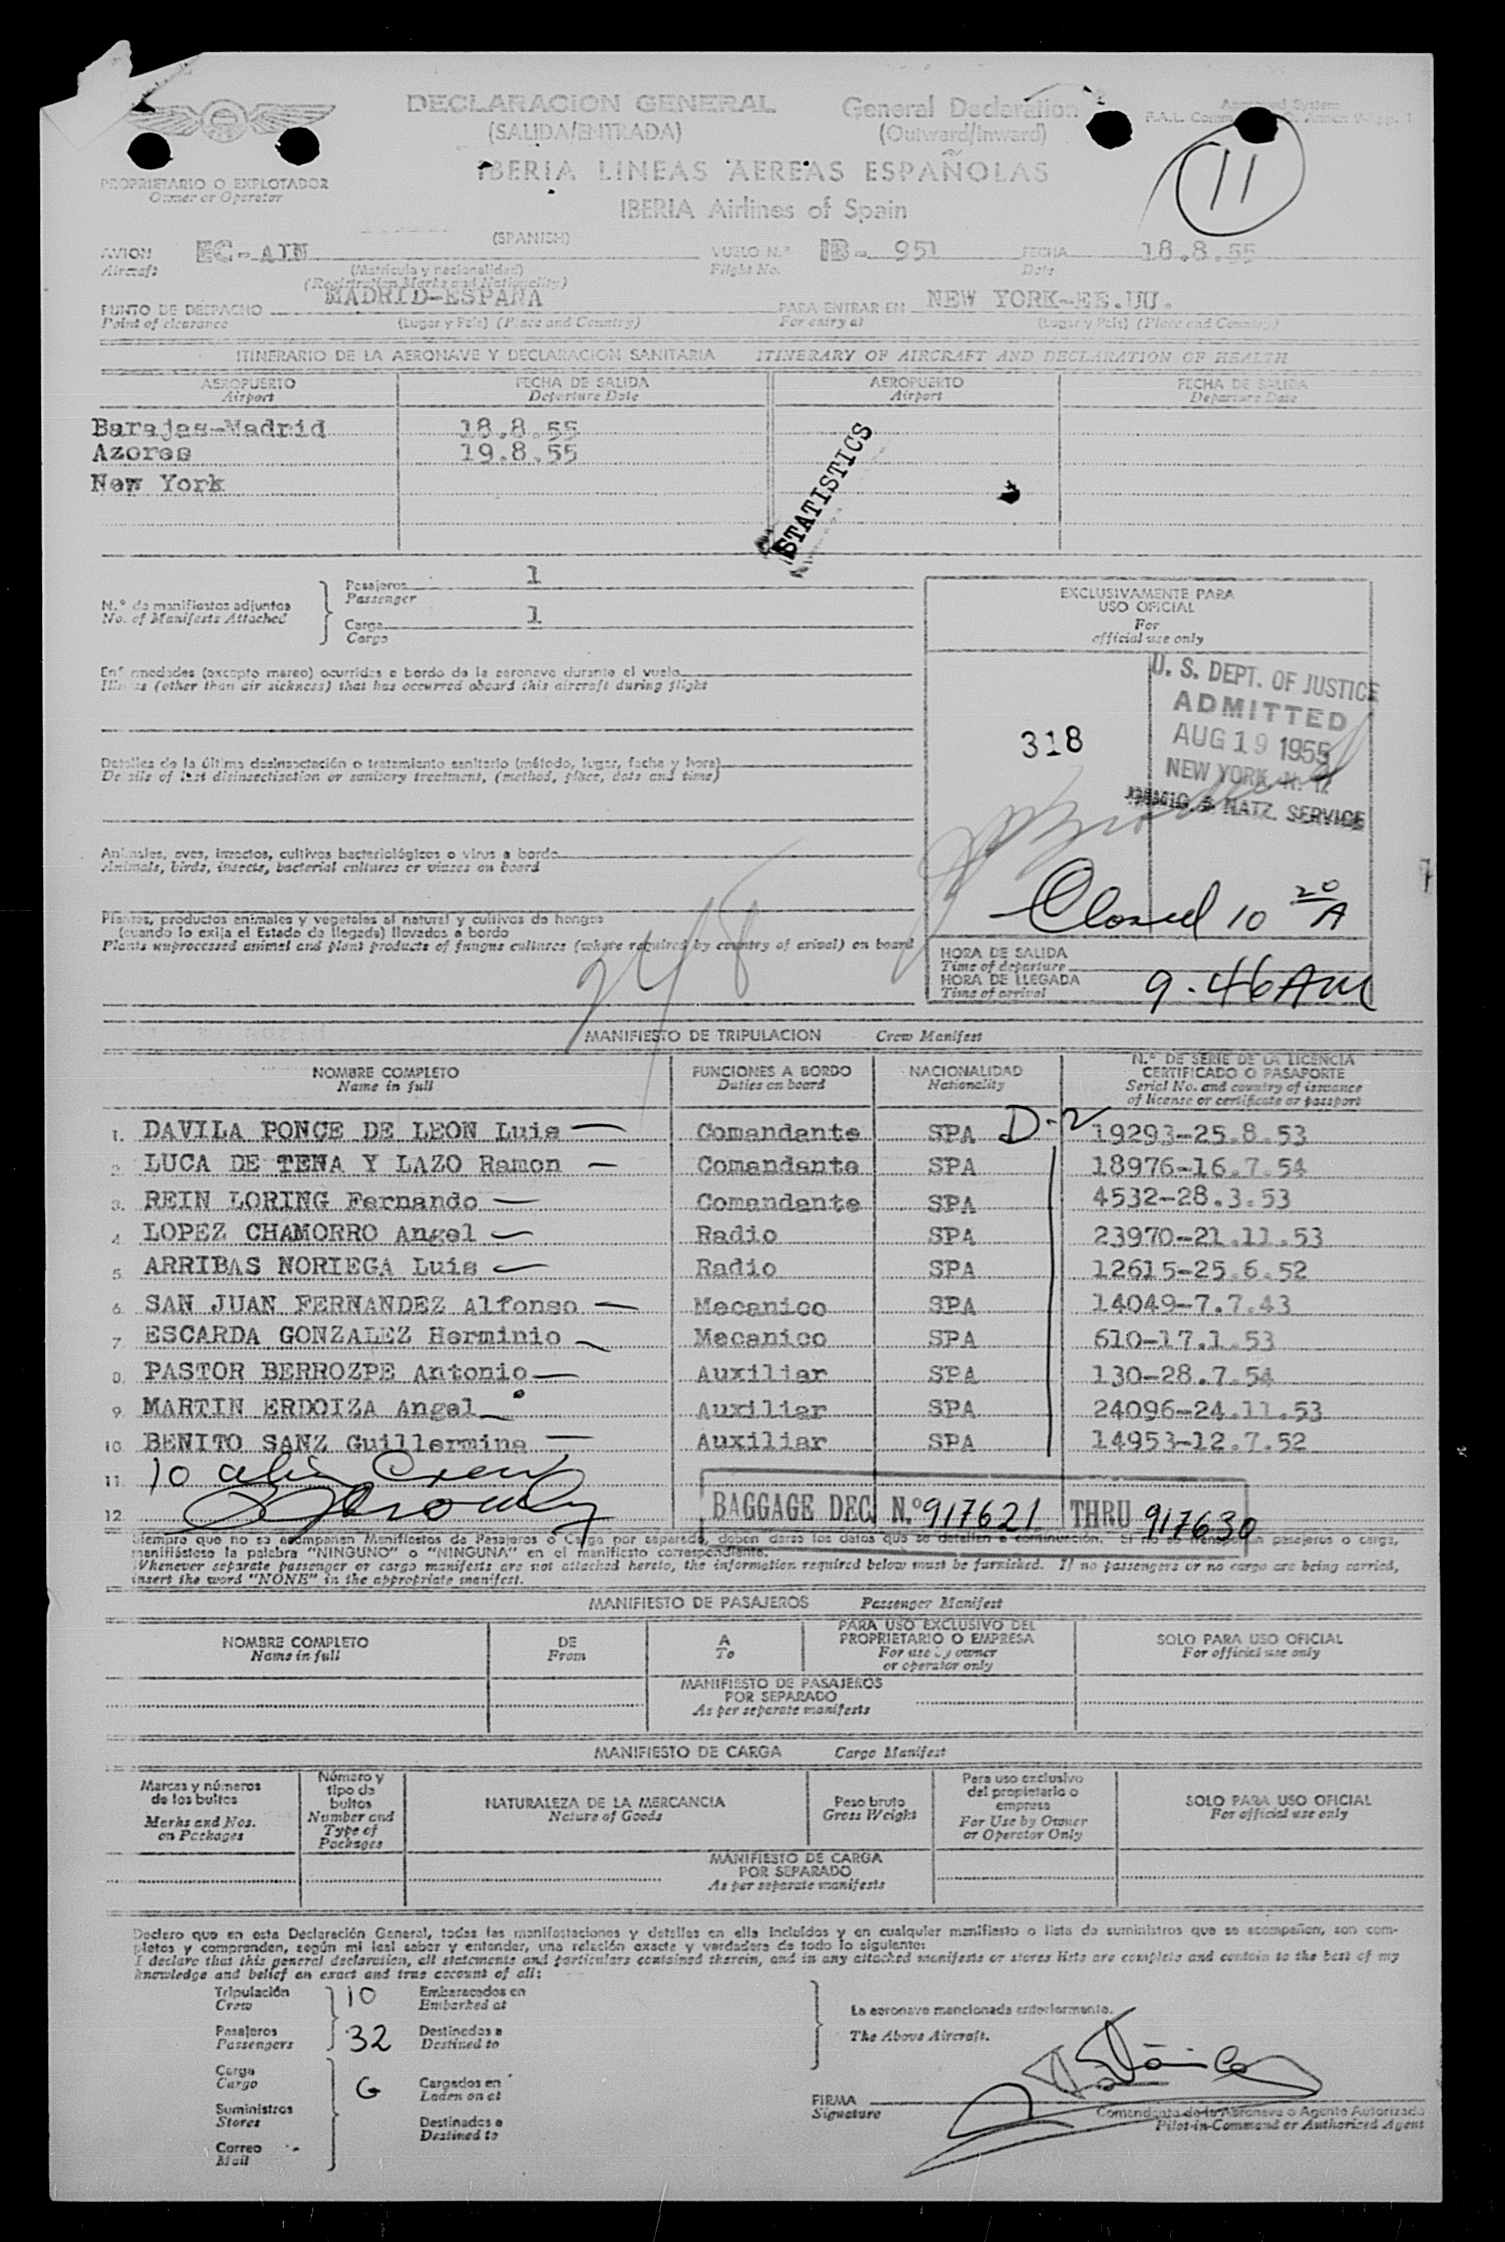 DECLARACION GENERAL
General Declaration
(SALIDA/ENTRADA)
(Outward/Inward)
IBERIA LINEAS AEREAS ESPAÑOLAS
IBERIA Airlines of Spain
11
PROPRIETARIO O EXPLOTADOR
Owner or Operator
(SPANISH)
AVION EC-AIN VUELO N.º IB- 951 FECHA 18.8.55
Aircraft (Matrícula y nacionalidad) Flight No. Date
(Registration Marks and Nationality)
PUNTO DE DESPACHO MADRID-ESPAÑA PARA ENTRAR EN NEW YORK-EE.UU.
Point of clearance (Lugar y País) (Place and Country) For entry at (Lugar y País) (Place and Country)
ITINERARIO DE LA AERONAVE Y DECLARACION SANITARIA ITINERARY OF AIRCRAFT AND DECLARATION OF HEALTH
AEROPUERTO FECHA DE SALIDA AEROPUERTO FECHA DE SALIDA
Airport Departure Date Airport Departure Date
Barajas-Madrid 18.8.55
Azores 19.8.55
New York
STATISTICS
N.º de manifiestos adjuntos
No. of Manifests Attached
Pasajeros 1
Passenger
Carga 1
Cargo
EXCLUSIVAMENTE PARA
USO OFICIAL
For
official use only
Enfermedades (excepto mareo) ocurridas a bordo de la aeronave durante el vuelo
Illness (other than air sickness) that has occurred aboard this aircraft during flight
318
U. S. DEPT. OF JUSTICE
ADMITTED
AUG 19 1955
NEW YORK, N. Y.
IMMIG. & NATZ. SERVICE
Detalles de la última desinsectación o tratamiento sanitario (método, lugar, fecha y hora)
Details of last disinsectisation or sanitary treatment, (method, place, date and time)
Animales, aves, insectos, cultivos bacteriológicos o virus a bordo
Animals, birds, insects, bacterial cultures or viuses on board
Closed 10 20 A
Plantas, productos animales y vegetales al natural y cultivos de hongos
(cuando lo exija el Estado de llegada) llevados a bordo
Plants unprocessed animal and plant products of fungus cultures (where required by country of arival) on board
248
HORA DE SALIDA
Time of departure
HORA DE LLEGADA 9.46 AM
Time of arrival
MANIFIESTO DE TRIPULACION Crew Manifest
NOMBRE COMPLETO FUNCIONES A BORDO NACIONALIDAD N.º DE SERIE DE LA LICENCIA CERTIFICADO O PASAPORTE
Name in full Duties on board Nationality Serial No. and country of issuance of license or certificate or passport
1. DAVILA PONCE DE LEON Luis Comandante SPA D-2 19293-25.8.53
2. LUCA DE TENA Y LAZO Ramon Comandante SPA 18976-16.7.54
3. REIN LORING Fernando Comandante SPA 4532-28.3.53
4. LOPEZ CHAMORRO Angel Radio SPA 23970-21.11.53
5. ARRIBAS NORIEGA Luis Radio SPA 12615-25.6.52
6. SAN JUAN FERNANDEZ Alfonso Mecanico SPA 14049-7.7.43
7. ESCARDA GONZALEZ Herminio Mecanico SPA 610-17.1.53
8. PASTOR BERROZPE Antonio Auxiliar SPA 130-28.7.54
9. MARTIN ERDOIZA Angel Auxiliar SPA 24096-24.11.53
10. BENITO SANZ Guillermina Auxiliar SPA 14953-12.7.52
11. 10 alien Crew
12.
BAGGAGE DEC. N.º 917621 THRU 917630
Siempre que no se acompañen Manifiestos de Pasajeros o Carga por separado, deben darse los datos que se detallan a continuación. Si no se transportan pasajeros o carga,
manifiéstese la palabra "NINGUNO" o "NINGUNA" en el manifiesto correspondiente.
Whenever separate passenger or cargo manifests are not attached hereto, the information required below must be furnished. If no passengers or no cargo are being carried,
insert the word "NONE" in the appropriate manifest.
MANIFIESTO DE PASAJEROS Passenger Manifest
NOMBRE COMPLETO DE A PARA USO EXCLUSIVO DEL PROPRIETARIO O EMPRESA SOLO PARA USO OFICIAL
Name in full From To For use by owner or operator only For official use only
MANIFIESTO DE PASAJEROS
POR SEPARADO
As per separate manifests
MANIFIESTO DE CARGA Cargo Manifest
Marcas y números de los bultos Número y tipo de bultos NATURALEZA DE LA MERCANCIA Peso bruto Para uso exclusivo del propietario o empresa SOLO PARA USO OFICIAL
Marks and Nos. on Packages Number and Type of Packages Nature of Goods Gross Weight For Use by Owner or Operator Only For official use only
MANIFIESTO DE CARGA
POR SEPARADO
As per separate manifests
Declaro que en esta Declaración General, todas las manifestaciones y detalles en ella incluidos y en cualquier manifiesto o lista de suministros que se acompañen, son com-
pletos y comprenden, según mi leal saber y entender, una relación exacta y verdadera de todo lo siguiente:
I declare that this general declaration, all statements and particulars contained therein, and in any attached manifests or stores lists are complete and contain to the best of my
knowledge and belief an exact and true account of all:
Tripulación 10 Embarcados en
Crew Embarked at
Pasajeros 32 Destinados a
Passengers Destined to
La aeronave mencionada anteriormente.
The Above Aircraft.
Carga G Cargados en
Cargo Laden on at
Suministros Destinados a
Stores Destined to
Correo
Mail
FIRMA
Signature
Comandante de la Aeronave o Agente Autorizado
Pilot-in-Command or Authorized Agent